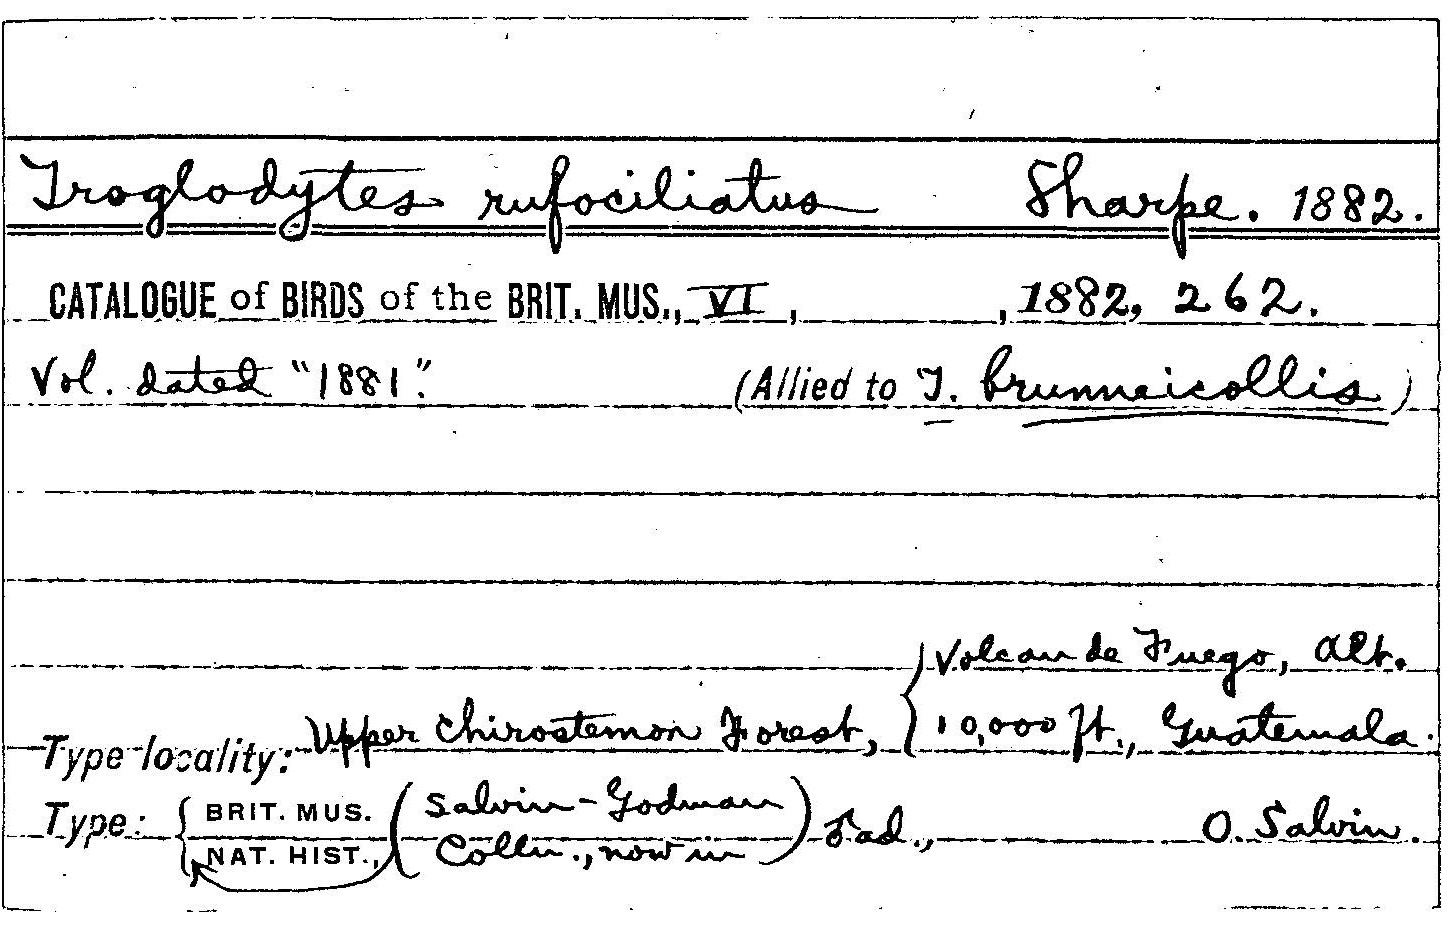 Troglodytes rufociliatus Sharpe. 1882.
CATALOGUE of BIRDS of the BRIT. MUS., VI, , 1882, 262.
Vol. dated "1881". (Allied to T. brunneicollis)
Volcan de Fuego, Alt.
Type locality: Upper Chirostemon Forest, 10,000 ft., Guatemala.
Type: BRIT. MUS. (Salvin-Godman ad., O. Salvin.
NAT. HIST., Colln., now in)